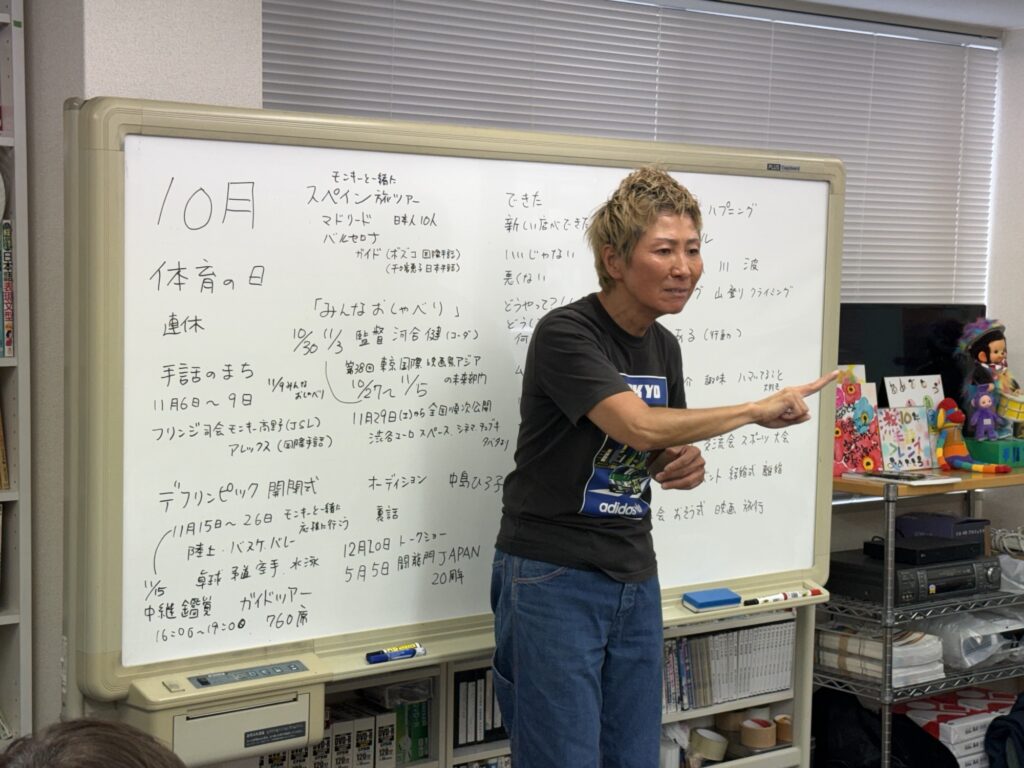 10月
体育の日
連休
手話のまち
11月6日～9日
フリンジ司会モンキー高野(JSL)
アレックス(国際手話)
デフリンピック 開閉式
11月15日～26日 モンキーと一緒に
応援に行こう
陸上・バスケ・バレー
卓球 柔道 空手・水泳
11/15
中継鑑賞 ガイドツアー
16:00～19:00 760席
モンキーと一緒に
スペイン旅ツアー
マドリード 日本人10人
バルセロナ
ガイド(ボズコ 国際手話)
日本手話)
「みんなおしゃべり」
10/30 11/3 監督 河合健(コーダ)
11/9みんな
おしゃべり
第38回 東京国際映画祭アジア
10/27～11/5 の未来部門
11月29日(土)から全国順次公開
渋谷ユーロスペース・シネマ・チュプキ
タバタ
オーディション 中島ひろ子
裏話
12月20日 トークショー
5月5日 開龍門JAPAN
20周年
できた
新しい店ができた
いいじゃない
悪くない
どうやって
どうし
何
ハプニング
ル
川 波
グ 山登り クライミング
ある(行動の)
介 趣味 ハマってること
大好き
交流会 スポーツ大会
ント 結婚式 離婚
会 お葬式 映画 旅行
PLUS
KYO
adidas
日本語表現文型
120
120